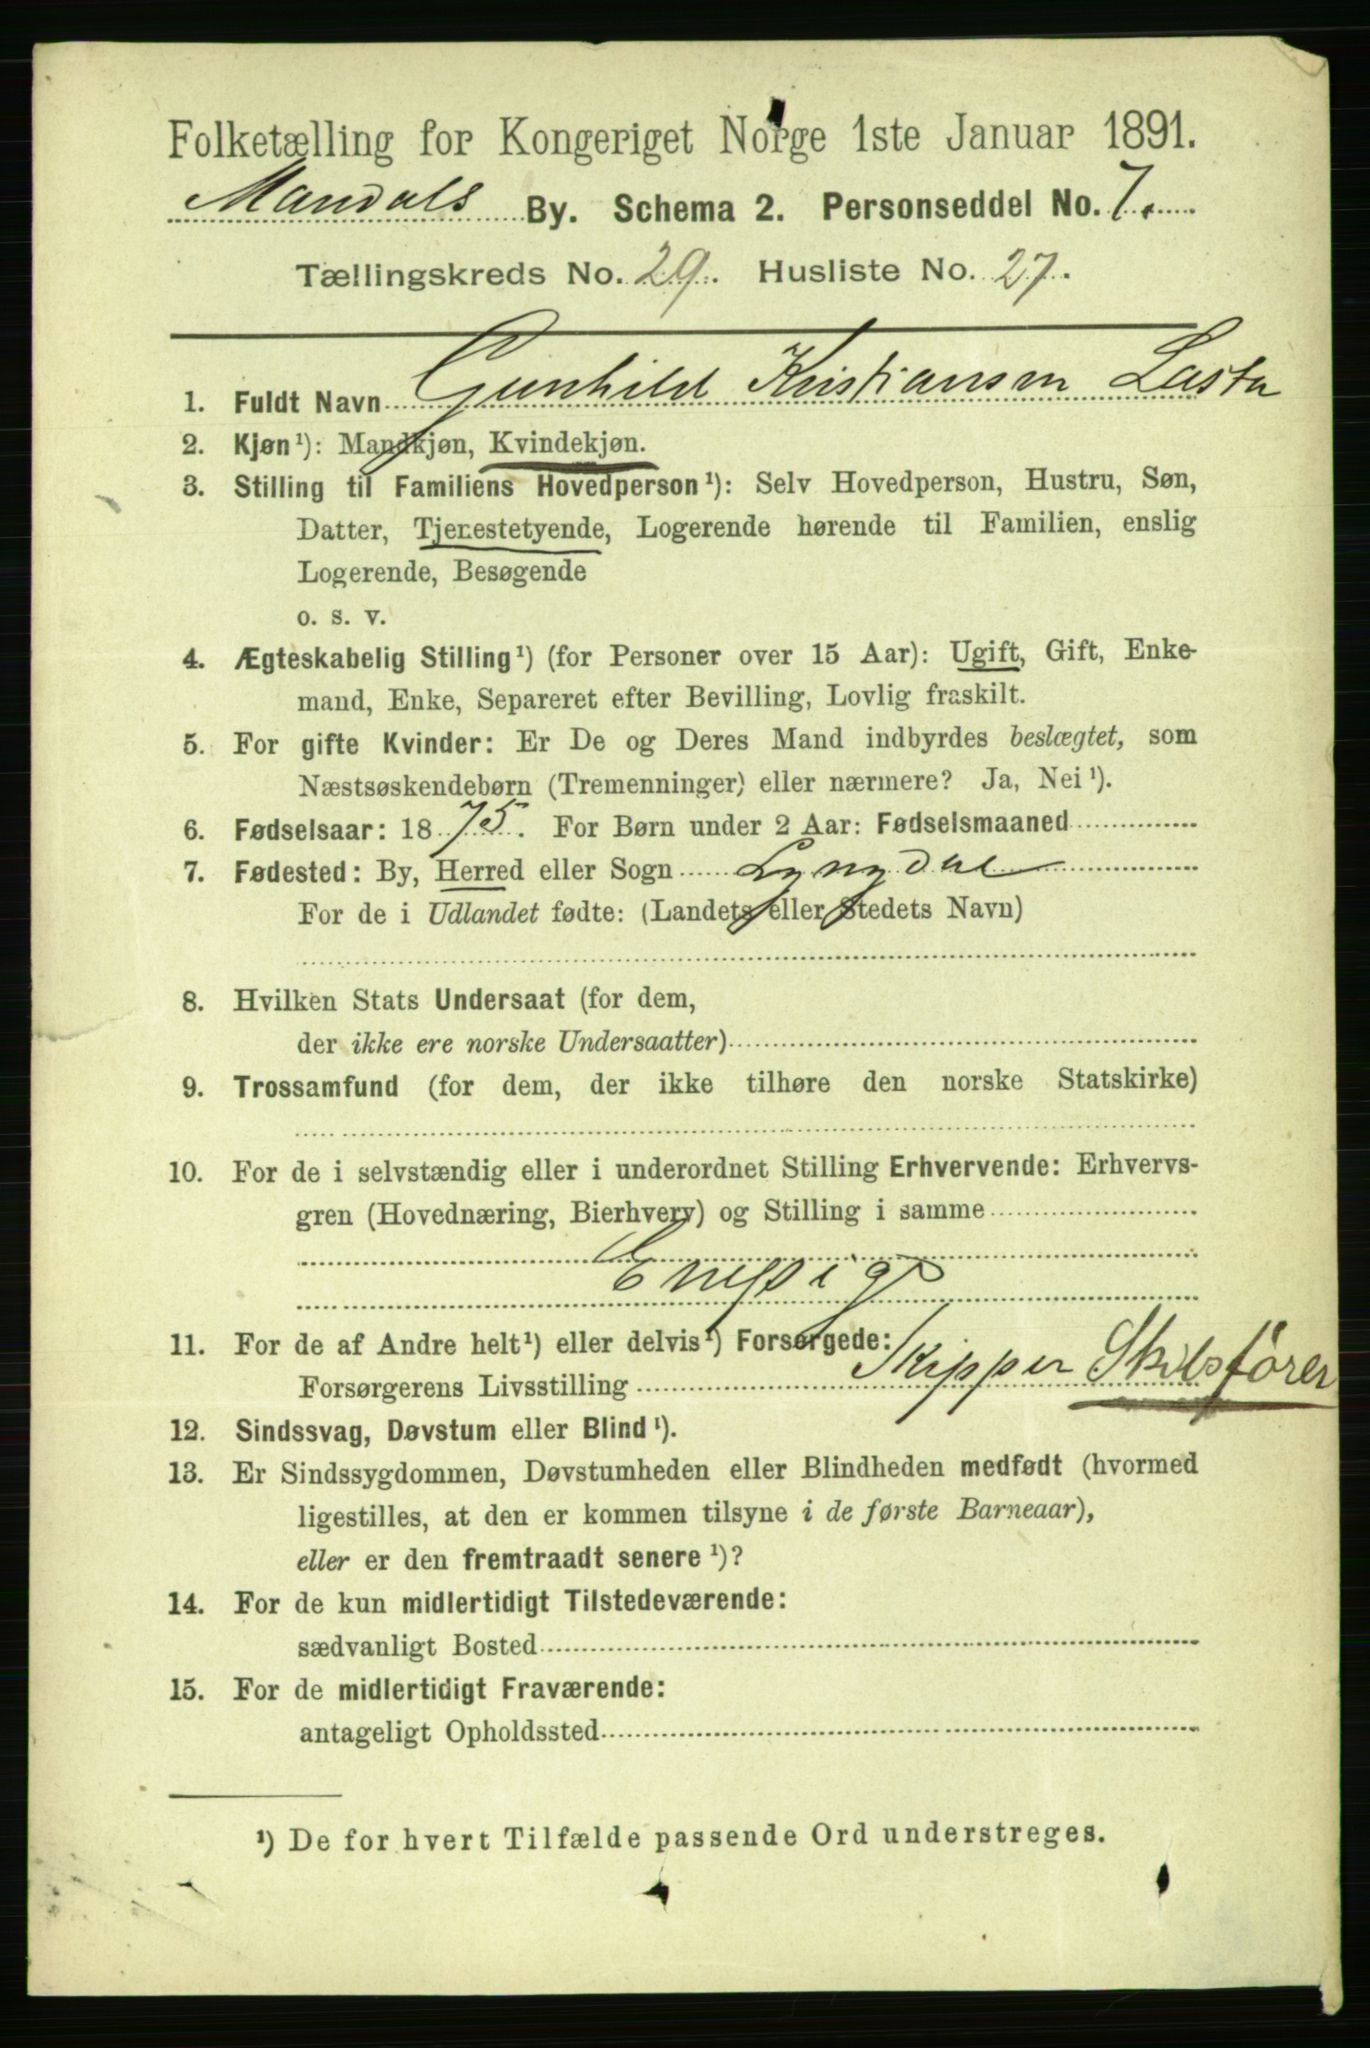 Folketælling for Kongeriget Norge 1ste Januar 1891.
Mandals By. Schema 2. Personseddel No. 7.
Tællingskreds No. 29. Husliste No. 27.
1. Fuldt Navn Gunhild Kristiansen Lasta
2. Kjøn¹): Mandkjøn, Kvindekjøn.
3. Stilling til Familiens Hovedperson¹): Selv Hovedperson, Hustru, Søn,
Datter, Tjenestetyende, Logerende hørende til Familien, enslig
Logerende, Besøgende
o. s. v.
4. Ægteskabelig Stilling¹) (for Personer over 15 Aar): Ugift, Gift, Enke-
mand, Enke, Separeret efter Bevilling, Lovlig fraskilt.
5. For gifte Kvinder: Er De og Deres Mand indbyrdes beslægtet, som
Næstsøskendebørn (Tremenninger) eller nærmere? Ja, Nei¹).
6. Fødselsaar: 1875. For Børn under 2 Aar: Fødselsmaaned
7. Fødested: By, Herred eller Sogn Lyngdal
For de i Udlandet fødte: (Landets eller Stedets Navn)
8. Hvilken Stats Undersaat (for dem,
der ikke ere norske Undersaatter)
9. Trossamfund (for dem, der ikke tilhøre den norske Statskirke)
10. For de i selvstændig eller i underordnet Stilling Erhvervende: Erhvervs-
gren (Hovednæring, Bierhverv) og Stilling i samme
11. For de af Andre helt¹) eller delvis¹) Forsørgede:
Forsørgerens Livsstilling Skipper Skibsfører
12. Sindssvag, Døvstum eller Blind¹).
13. Er Sindssygdommen, Døvstumheden eller Blindheden medfødt (hvormed
ligestilles, at den er kommen tilsyne i de første Barneaar),
eller er den fremtraadt senere¹)?
14. For de kun midlertidigt Tilstedeværende:
sædvanligt Bosted
15. For de midlertidigt Fraværende:
antageligt Opholdssted
¹) De for hvert Tilfælde passende Ord understreges.